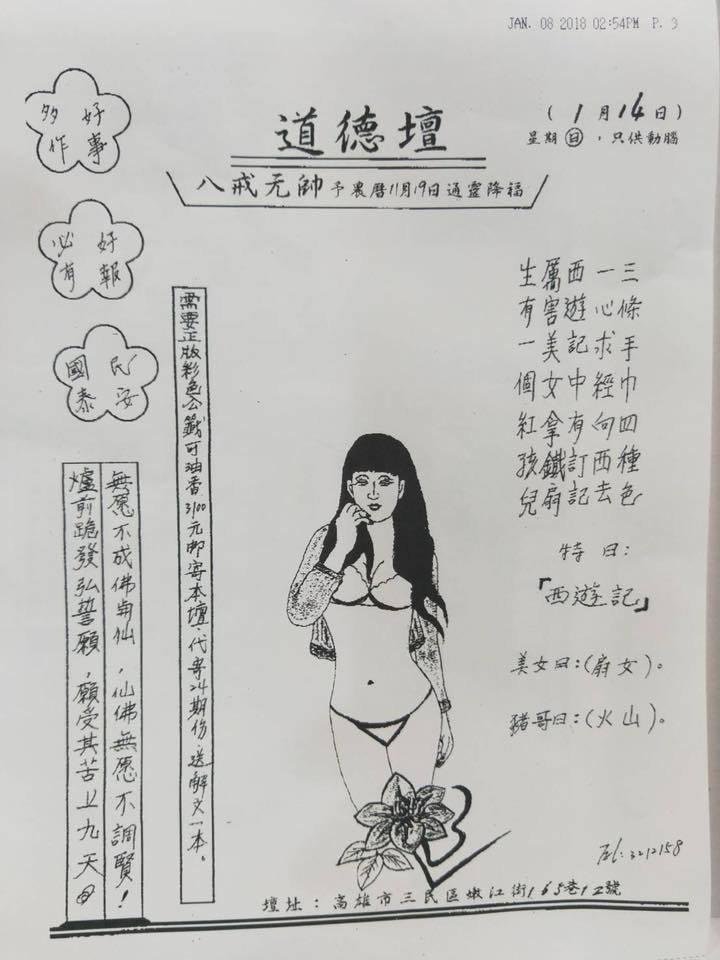 JAN. 08 2018 02:54PM P. 3
道德壇
(1月14日)
星期日,只供動腦
八戒元帥予農曆11月19日通靈降福
好事
多作
好報
必有
民安
國泰
三條手巾四種色
一心求經向西去
西遊記中有訂記
厲害美女拿鐵扇
生有一個紅孩兒
特曰:
「西遊記」
美女曰:(扇女)。
豬哥曰:(火山)。
需要正版彩色公籤可油香3100元郵寄本壇、代寄24期份、送解文一本。
無愿不成佛與仙,仙佛無愿不調賢!
爐前跪發弘誓願,願受其苦上九天
Tel:3212158
壇址:高雄市三民區嫩江街165巷12號